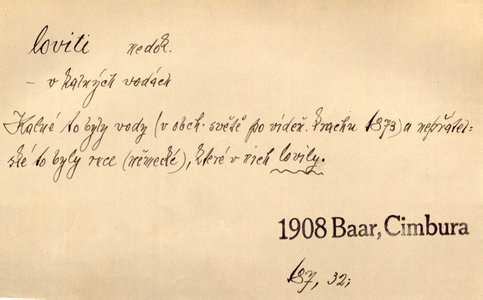 loviti nedok.
– v kalných vodách
Kalné to byly vody (v obch. světě po vídeň. krachu 1873) a nepřátel-
ské to byly ruce (německé), které v nich lovily.
1908 Baar, Cimbura
187, 32;